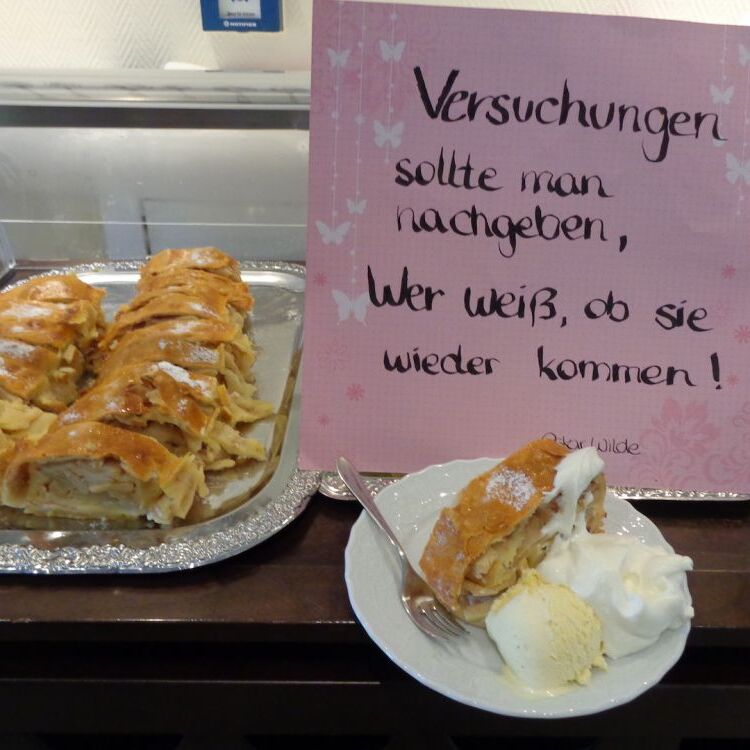 NOTIFIER
Versuchungen
sollte man
nachgeben,
Wer weiß, ob sie
wieder kommen!
Oskar Wilde